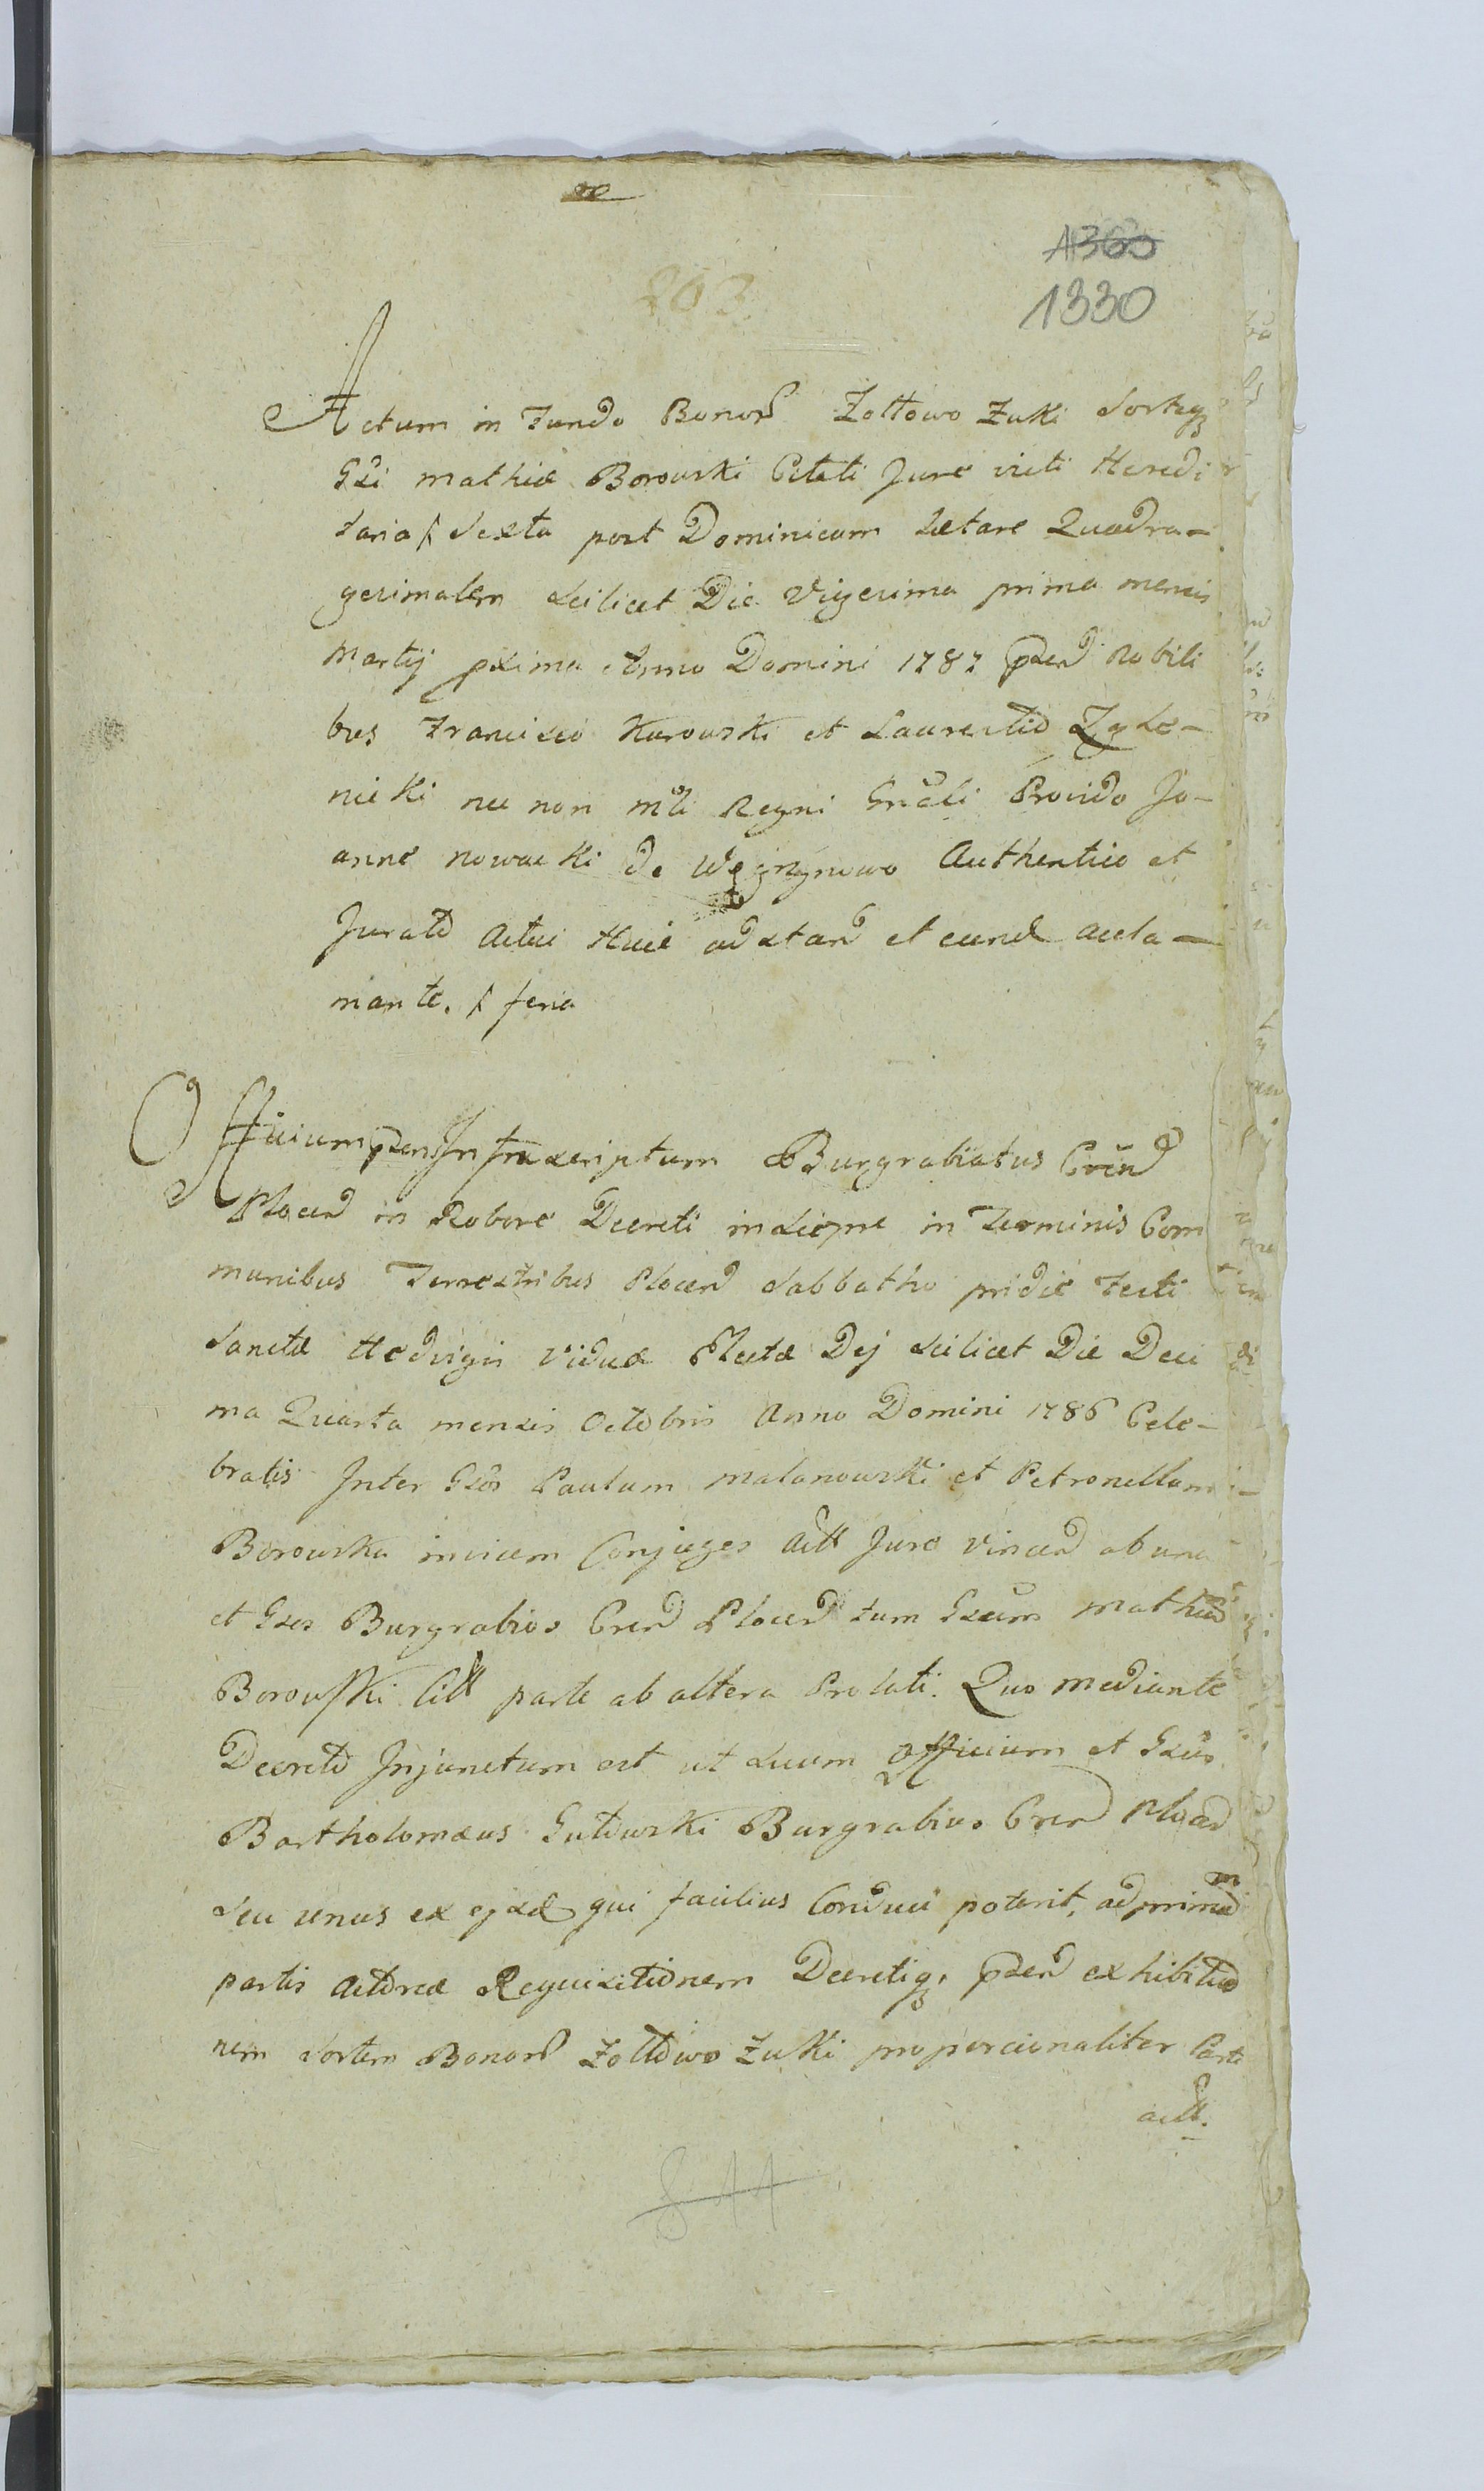 1360
203.
1330
Actum in Fundo Bonor Zołtowo Zuki Sorteqz
Gsi Mathiæ Borowski Citati Jure victi Heredi
taria / Sexta post Dominicam Lætare Quadra-
gesimalem scilicet Die Vigesima prima mensis
Martij pxima Anno Domini 1787 psen Nobili
bus Francisco Kurowski et Laurentio
nicki nec non Mtli Regni Gnali Provido Jo-
anne Nowacki de Authentico et
Jurato Actui Huic adstan et eund accla-
mante. / feria
Officium psens Infrascriptum Burgrabiatus Cren
Plocen in Robore Decreti in Termins Com
munibus Terrestribus Plocen Sabbatho pridie Festi
Sanctæ Hedvigis Viduæ Electæ Dej scilicet Die Deci
ma Quarta mensis Octobris Anno Domini 1786 Cele-
bratis Inter Gsos Paulum Malanowski et Petronellam
Borowska invicem Conjuges Actt Jure vincen ab una
et Gsos Burgrabios Cren Plocen tum Gsum Mathiã
Borowski Citt parte ab altera Prolati. Quo mediante
Decreto Injunctum est ut suum Officium et Gsus
Bartholomæus Gutowski Burgrabius Cren Plocen
seu unus ex ejsd qui facilius Conduci poterit, ad primam
partis Actoreæ Requisitionem Decretiq, psen exhibitio
nem Sortem Bonor Zołtowo Zuki proporcionaliter Parti
actt.